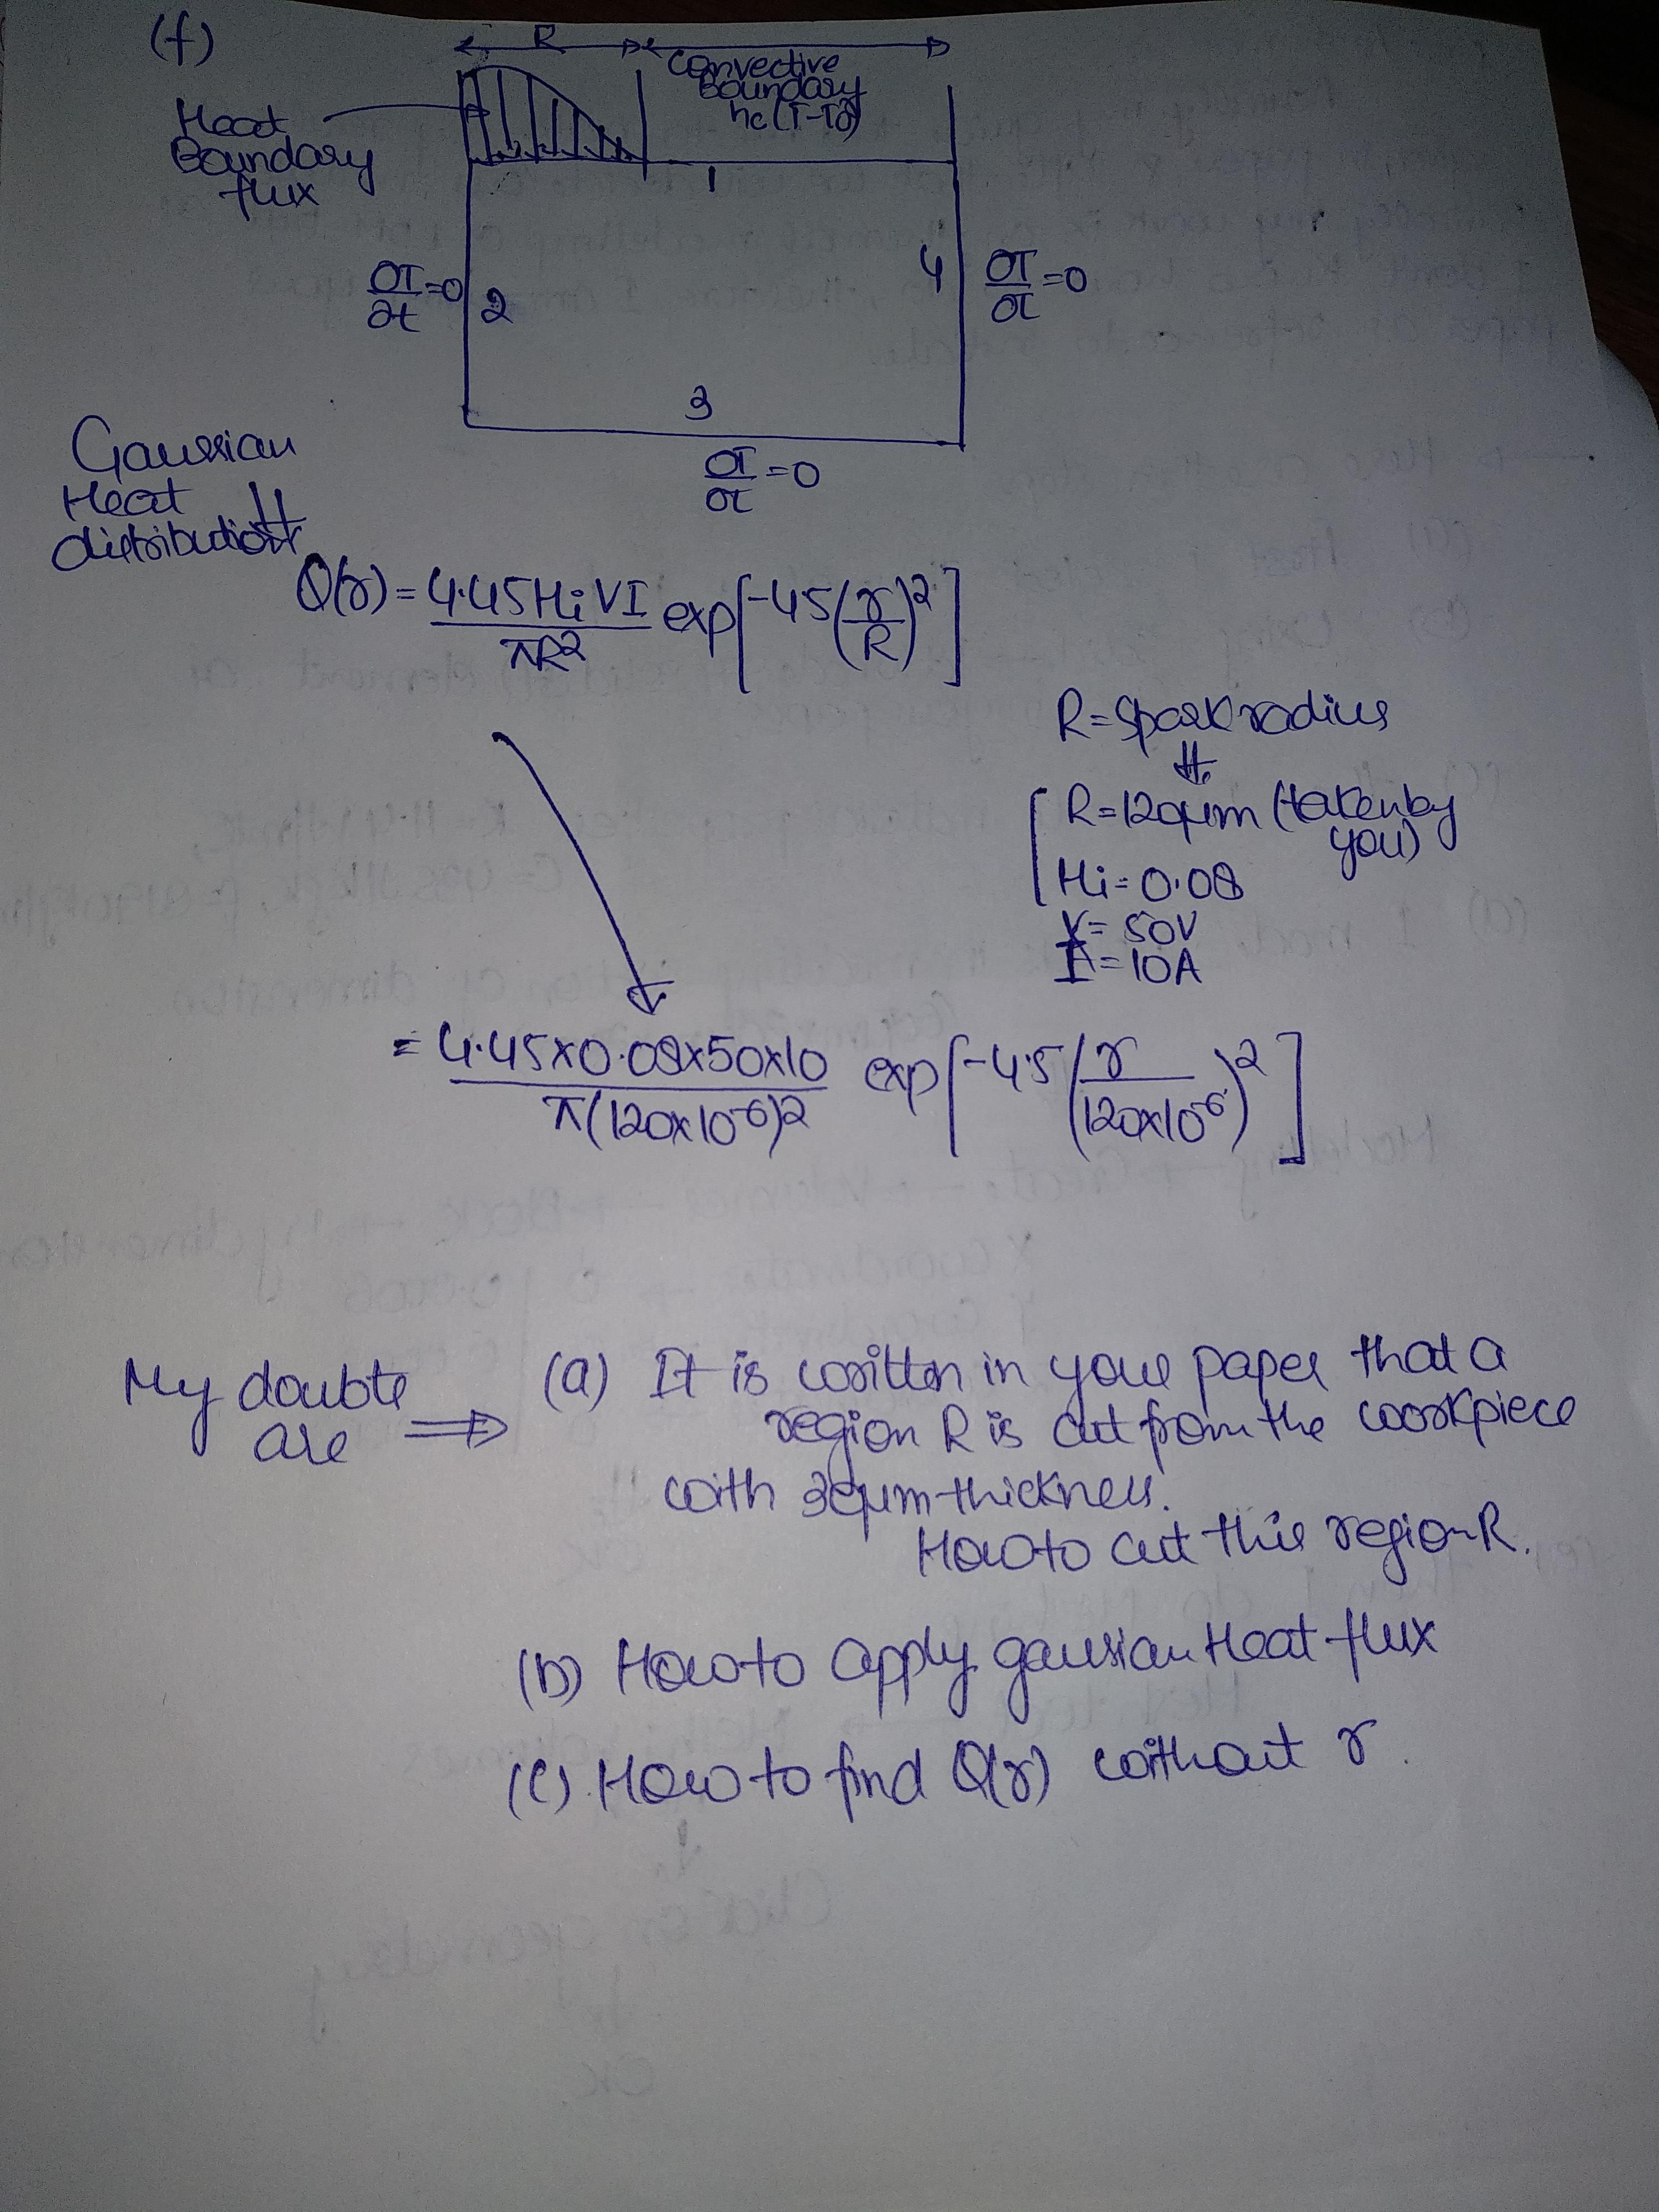 (f)
R
Convective
Boundary
hc(T-T0)
Heat
Boundary
flux
1
∂T/∂t=0
2
4
∂T/∂t=0
3
∂T/∂t=0
Gaussian
Heat
distribution
Q(r) = 4.45HiVI/πR² exp[-4.5(r/R)²]
R=Spark radius
R=120μm (taken by
you)
Hi=0.08
V= 50V
I=10A
= 4.45x0.08x50x10/π(120x10⁻⁶)² exp[-4.5(r/120x10⁻⁶)²]
My doubts
are ⇒
(a) It is written in your paper that a
region R is cut from the workpiece
with 30μm thickness.
How to cut this region R.
(b) How to apply gausian Heat flux
(c). How to find Q(r) without r.